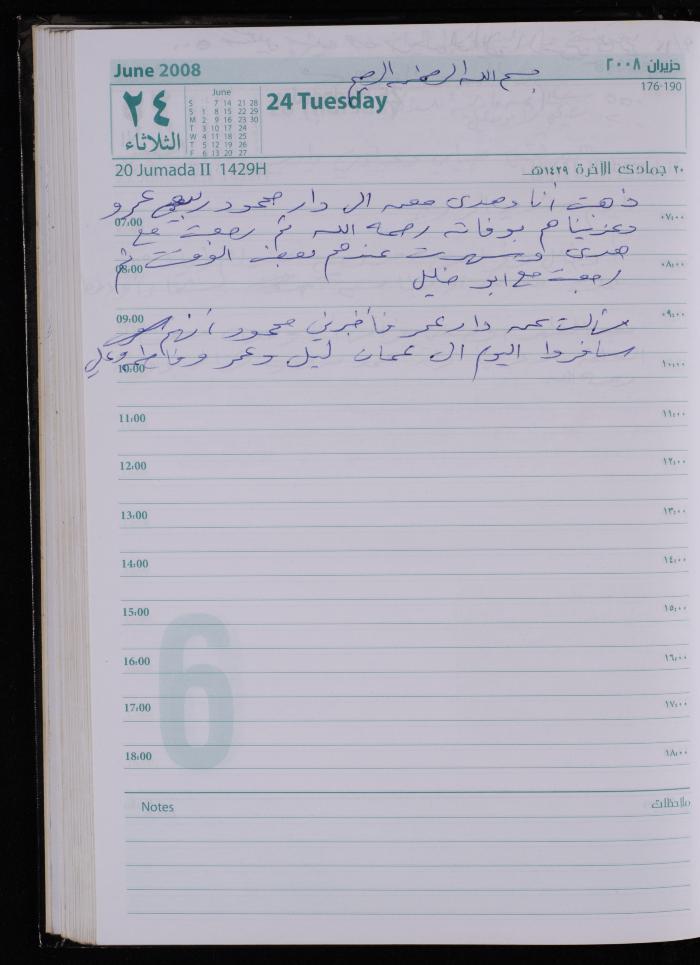 June 2008
حزيران ٢٠٠٨
بسم الله الرحمن الرحيم
176-190
٢٤
الثلاثاء
June
S 7 14 21 28
S 1 8 15 22 29
M 2 9 16 23 30
T 3 10 17 24
W 4 11 18 25
T 5 12 19 26
F 6 13 20 27
24 Tuesday
20 Jumada II 1429H
٢٠ جمادى الآخرة ١٤٢٩هـ
ذهبت أنا وهدى الى دار محمود ربيع عمرو
07:00 ٠٧:٠٠
وعزيناهم بوفاته رحمه الله ثم رجعت مع
هدى وسهرت عندهم بعض الوقت ثم
08:00 ٠٨:٠٠
رجعت مع ابو خليل
09:00 ٠٩:٠٠
سألت عن دار عمر فأخبرني محمود أنهم
سافروا اليوم الى عمان ليل وعمر وفاطمة وعلي
10:00 ١٠:٠٠
11:00 ١١:٠٠
12:00 ١٢:٠٠
13:00 ١٣:٠٠
14:00 ١٤:٠٠
15:00 ١٥:٠٠
6
16:00 ١٦:٠٠
17:00 ١٧:٠٠
18:00 ١٨:٠٠
Notes ملاحظات